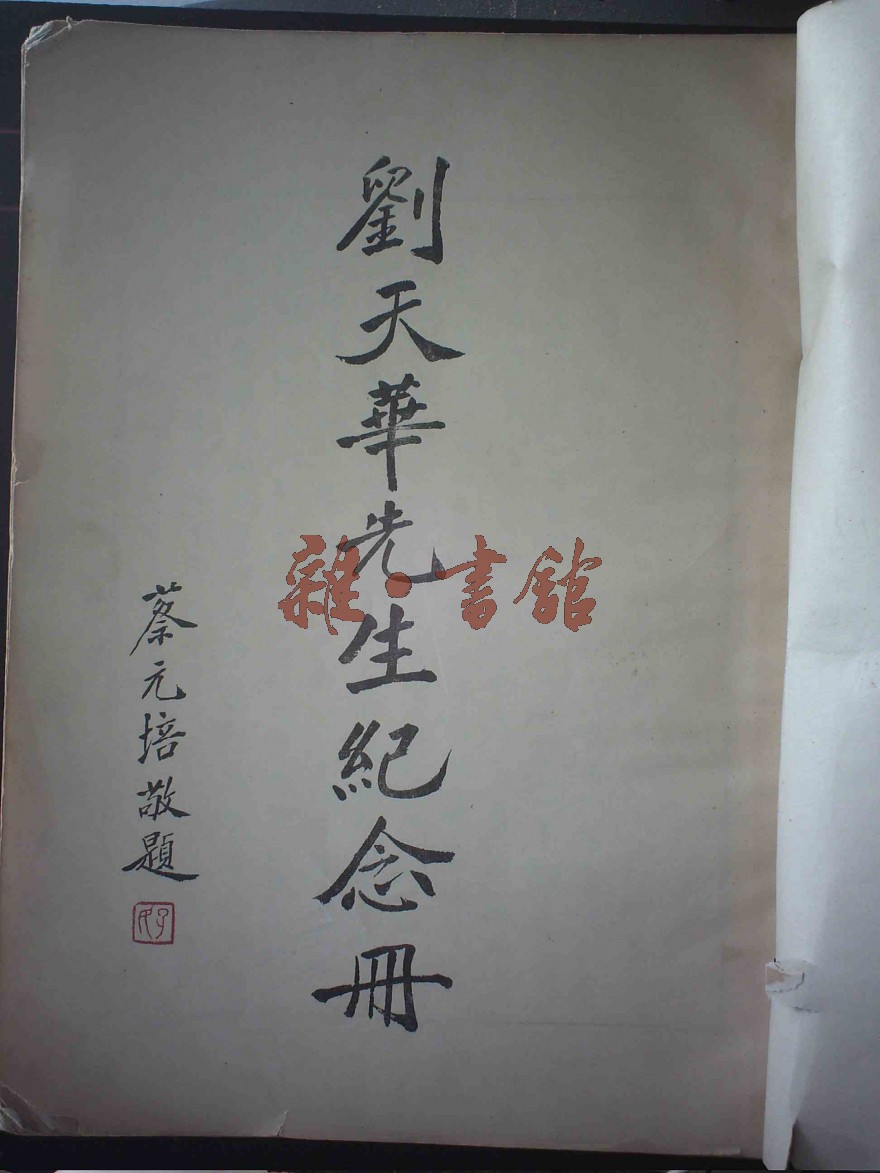 劉天華先生紀念冊
蔡元培敬題
雜·書館